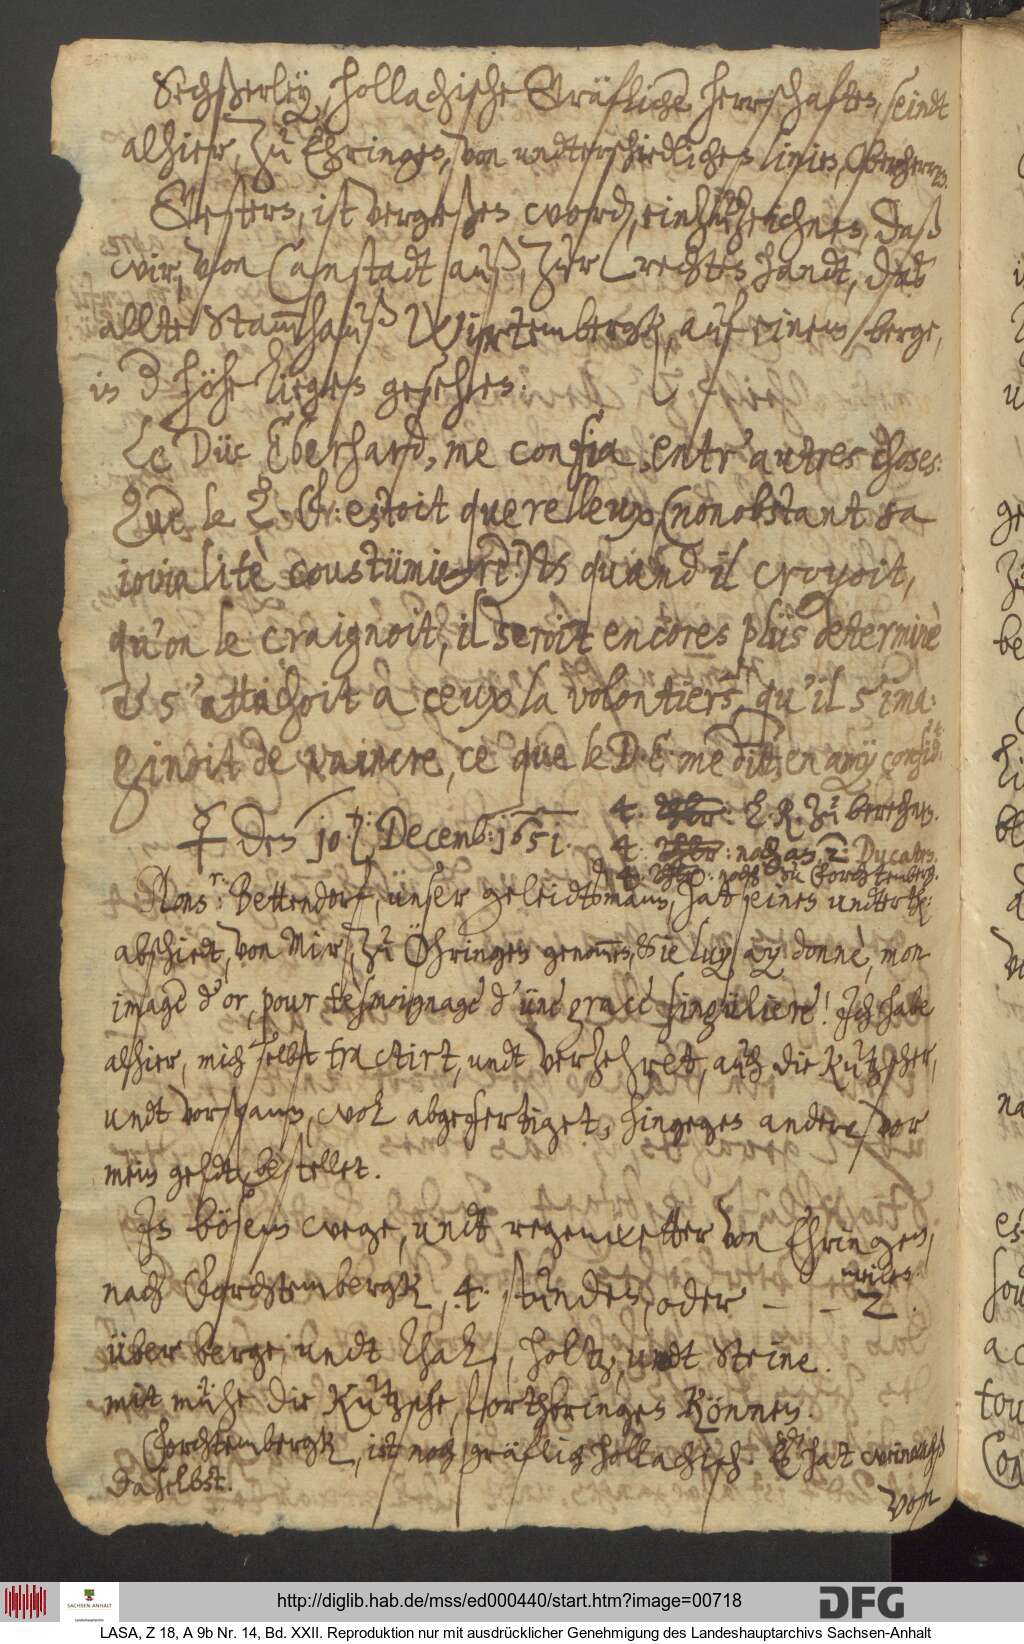 Sechßerley, Hollachische Gräfliche herrschaften, seindt
alhier, zu Ehringen, von undterschiedlichen linien, Oberherren.
Gestern, ist vergeßen word, einzuzeichnen, daß
wir, von Canstadt auß, zur rechten handt, daß
allte Stammhauß Wirtembergk, auf einem berge,
in d höhe liegen gesehen.
Le Düc Eberhard, me confia, entr'autres choses:
Que le estoit querelleux, (nonobstant sa
iovialitè coustümiere) et quand il croyoit,
qu'on le craignoit, il seroit encores plüs determinè
et s'attachoit à ceux la volontiers, qu'il s'ima-
ginoit de vaincre, ce que le D. E. me dit, en amy confid:
☿ den 10. Decemb: 1651.
4. : E. R. zu berechnen.
4. : noch an 2 Ducaten.
4. : noch zu Forchtemberg.
Mons.r: Bettendorf, unser geleidtsmann, hat seinen undterth:
abschiedt, von Mir, zu Öhringen genommen, Je luy ay donnè, mon
image d'or, pour tesmoignage d'üne grace singüliere! Ich habe
alhier, mich selbst tractirt, undt verzehret, auch die Kutzscher,
undt vorspann, wol abgefertiget, hingegen andere, vor
mein geldt, bestellet.
In bösem wege, undt regenwetter von Ehringen,
meilen
nach Forchtembergk, 4. stunden, oder — — 2.
über berge, undt thal, holtz, undt Steine.
mit mühe die Kutzsche, fortbringen können.
Forchtembergk, ist noch gräflich hollachisch. Es hat weinwachß
daselbst.
von
http://diglib.hab.de/mss/ed000440/start.htm?image=00718
SACHSEN-ANHALT
Landeshauptarchiv
DFG
LASA, Z 18, A 9b Nr. 14, Bd. XXII. Reproduktion nur mit ausdrücklicher Genehmigung des Landeshauptarchivs Sachsen-Anhalt